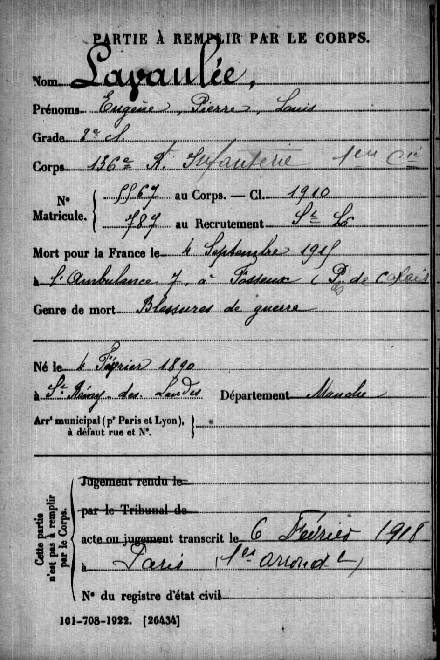 PARTIE À REMPLIR PAR LE CORPS.
Nom Lavaulée,
Prénoms Eugène, Pierre, Louis
Grade 2e Cl
Corps 136e R. Infanterie 1ere Cie
N° Matricule. { 5567 au Corps. — Cl. 1910
787 au Recrutement St Lo
Mort pour la France le 4 Septembre 1915
à l'Ambulance 7, à Fosseux (P. de Calais
Genre de mort Blessures de guerre
Né le 4 Février 1890
à St Rémy des Landes Département Manche
Arrt municipal (pr Paris et Lyon),
à défaut rue et N°.
Cette partie n'est pas à remplir par le Corps.
Jugement rendu le
par le Tribunal de
acte ou jugement transcrit le 6 Février 1918
à Paris (1er arrondt)
N° du registre d'état civil
101-708-1922. [26434]